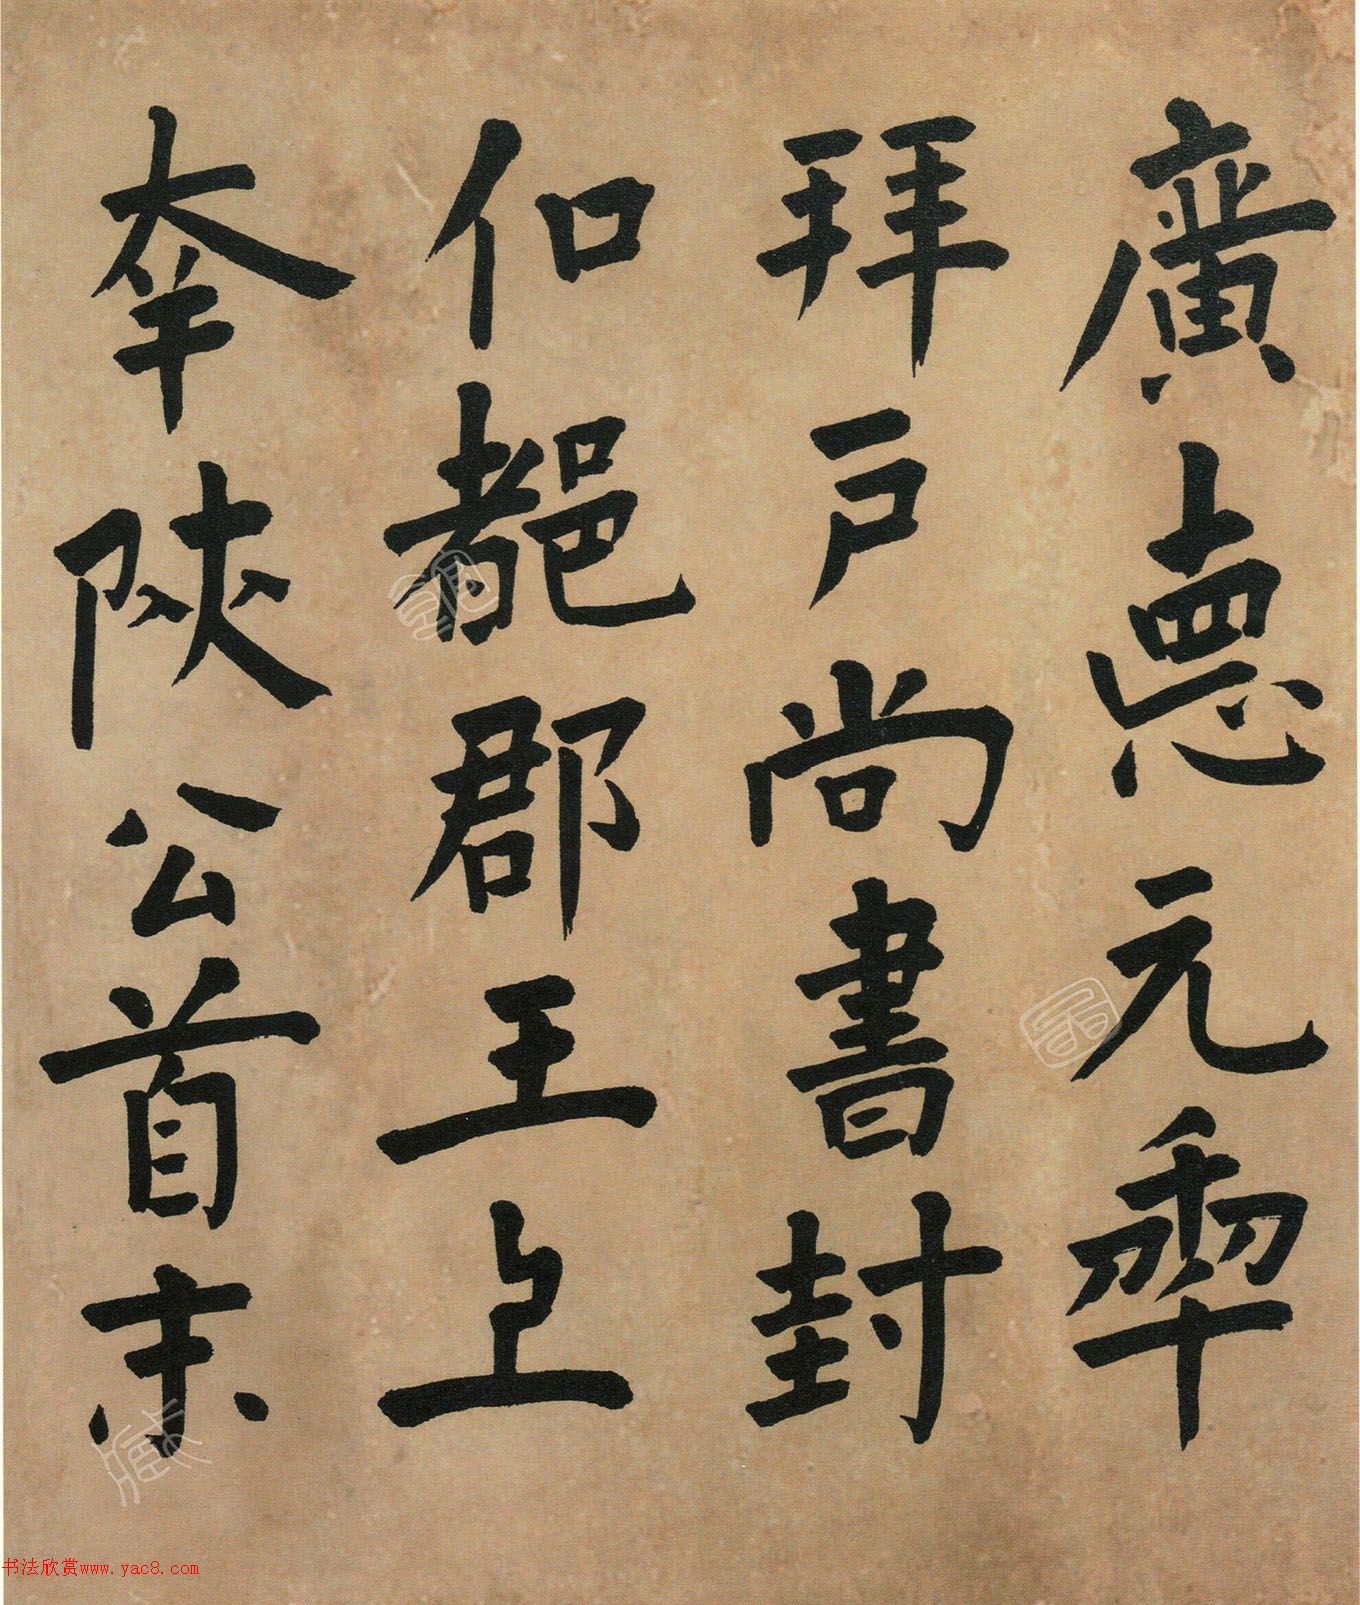 廣悳元秊
拜戶尚書封
仁邑郡王上
奉陝公首末
书法欣赏www.yac8.com